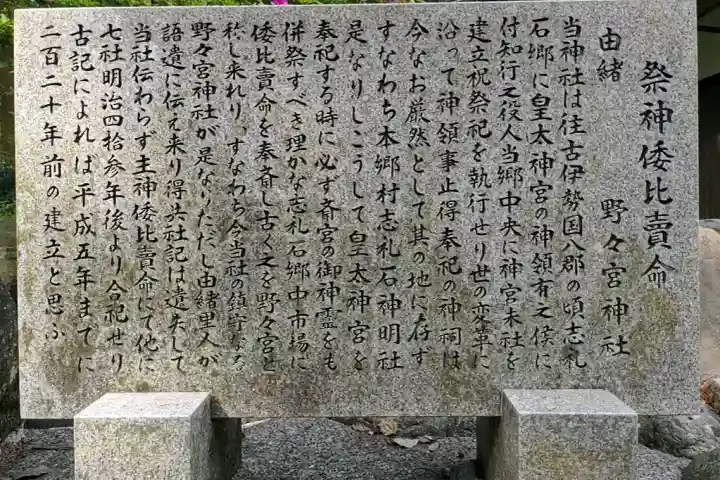 祭神倭比賣命
由緒　　　野々宮神社
当神社は往古伊勢国八郡の頃志礼
石郷に皇太神宮の神領有之侯に
付知行之役人当郷中央に神宮末社を
建立祝祭祀を執行せり世の変革に
沿って神領事止得奉祀の神祠は
今なお厳然として其の地に存ず
すなわち本郷村志礼石神明社
是なりしこうして皇太神宮を
奉祀する時に必ず斎宮の御神霊をも
併祭すべき理かな志礼石郷中市場に
倭比賣命を奉斎し古く之を野々宮と
称し来れり、すなわち今当社の鎮守なる
野々宮神社が是なりただし由緒里人が
語遺に伝え来り得共社記は遺失して
当社伝わらず主神倭比賣命にて他に
七社明治四拾参年後より合祀せり
古記によれば平成五年までに
二百二十年前の建立と思ふ